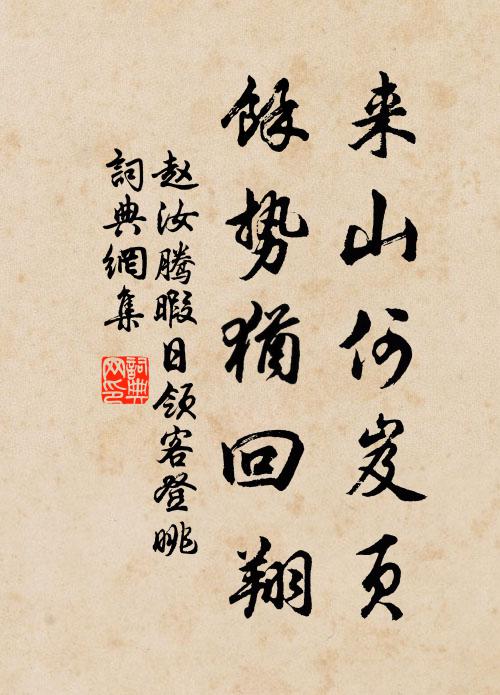 来山何岌页
餘势猶回翔
赵汝腾暇日领客登眺
詞典網集
詞典网印